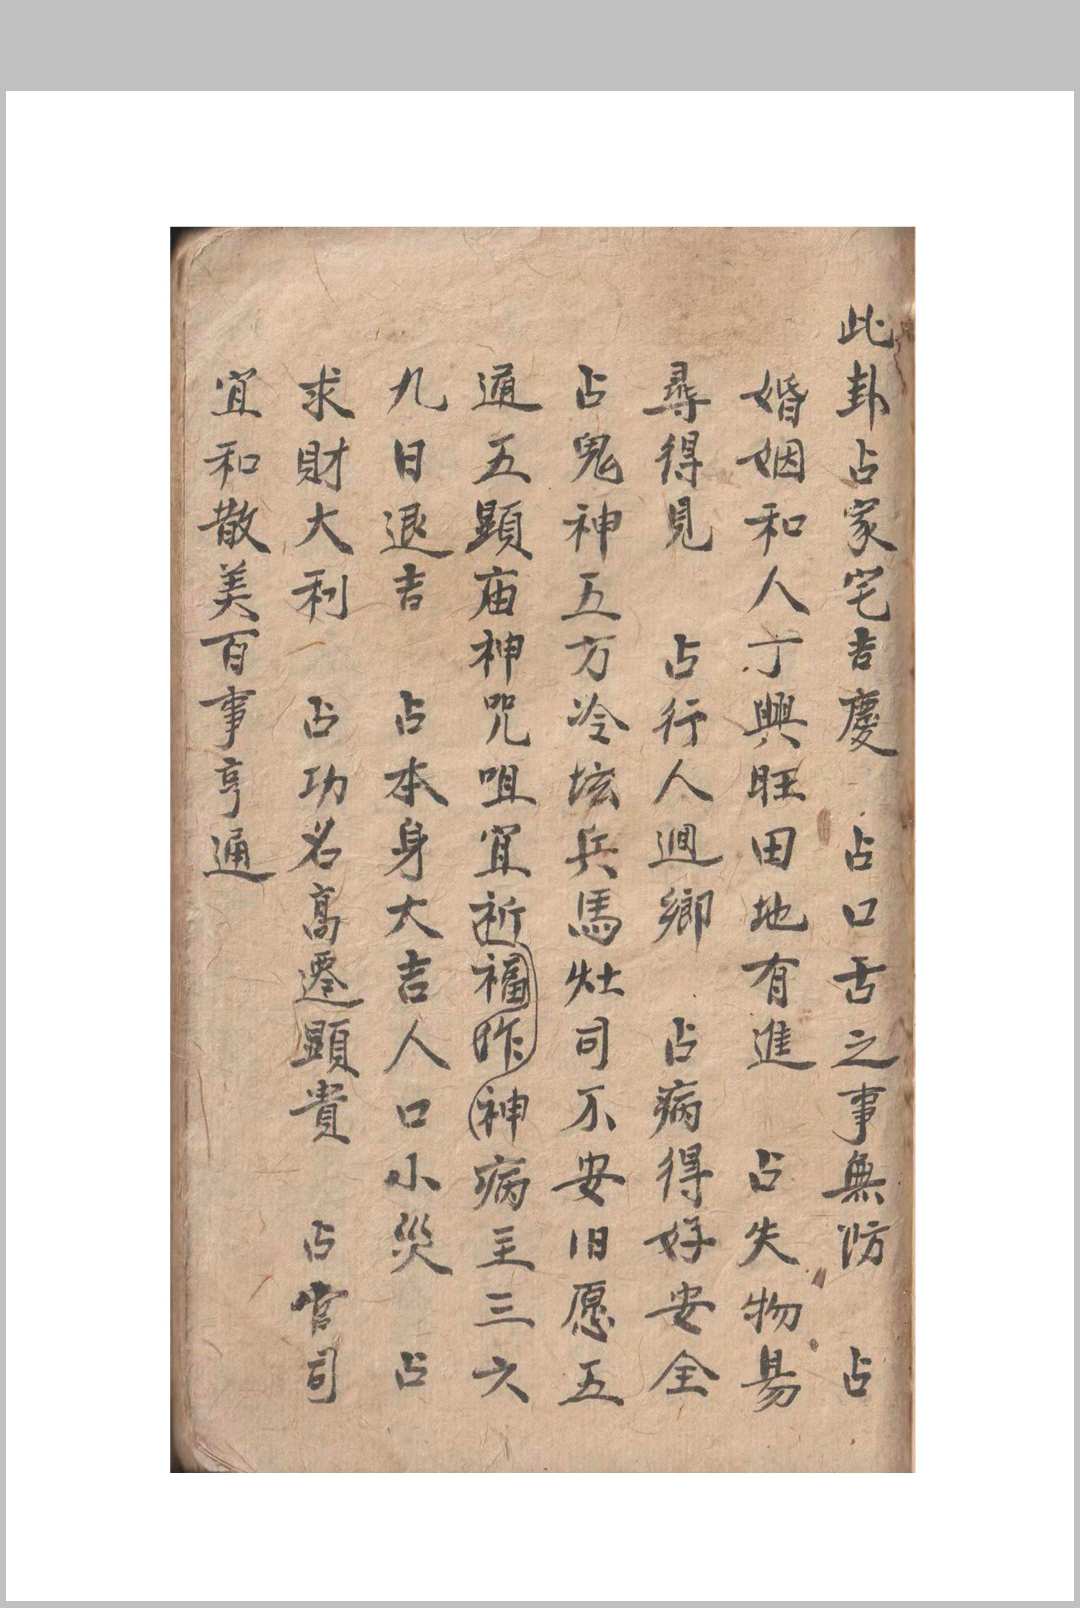 此卦占家宅吉慶 占口舌之事無防 占
婚姻和人丁興旺田地有進 占失物易
尋得見 占行人迴鄉 占病得好安全
占鬼神五方冷坛兵馬灶司不安旧愿五
通五顯庙神咒咀宜祈福昨神病主三六
九日退吉 占本身大吉人口小災 占
求財大利 占功名高遷顕貴 占官司
宜和散美百事亨通